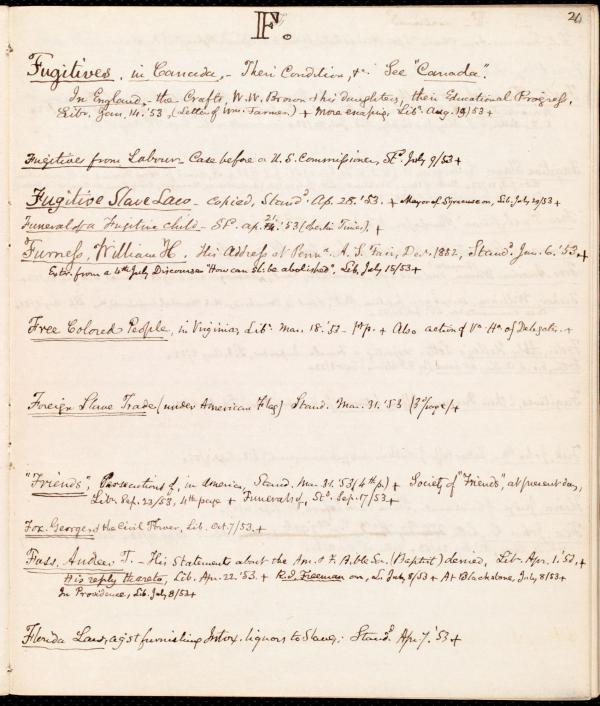 F.
Fugitives, in Canada, - Their Condition, &c. See "Canada".
In England, - the Crafts, W. W. Brown & his daughters, their Educational Progress,
Libr. Jan. 14. '53, (Letter of Wm. Farmer) + More escaping, Libr. Aug. 19/53 +
Fugitives from Labour Case before a U. S. Commissioner, Std. July 9/53 +
Fugitive Slave Law - copied, Standd. Ap. 28. '53. + Mayor of Syracuse on, Lib. July 29/53 +
Funeral of a Fugitive Child - Sd. Ap. '53 (Berlin Times), +
Furness, William H. His Address at Penna. A. S. Fair, Dec. 1852, Standd. Jan. 6. '53. +
Extr. from a 4th July Discourse "How can Sl. be abolished", Lib. July 15/53 +
Free Colored People, in Virginia, Libr. Mar. 18. '53 - 1st p. + Also action of Va. Ho. of Delegates. +
Foreign Slave Trade (under American Flag) Stand. Mar. 31. '53 (3d page) +
"Friends", Persecutions of, in America, Stand. Mar. 31. '53 (4th p.) + Society of "Friends", at present day,
Libr. Sep. 23/53, 4th page + Funerals of, Std. Sep. 17/53 +
Fox, George, & the Civil Power, Lib. Oct. 7/53. +
Foss, Andrew T. - His Statements about the Am. & F. Bible Soc. (Baptist) denied, Libr. Apr. 1. '53, +
His reply thereto, Lib. Apr. 22. '53. + R.d. Freeman on, July 8/53 + At Blackstone, July 8/53 +
In Providence, Lib. July 8/53 +
Florida Laws, agst furnishing Intox. liquors to Slaves; Standd. Apr. 7. '53 +